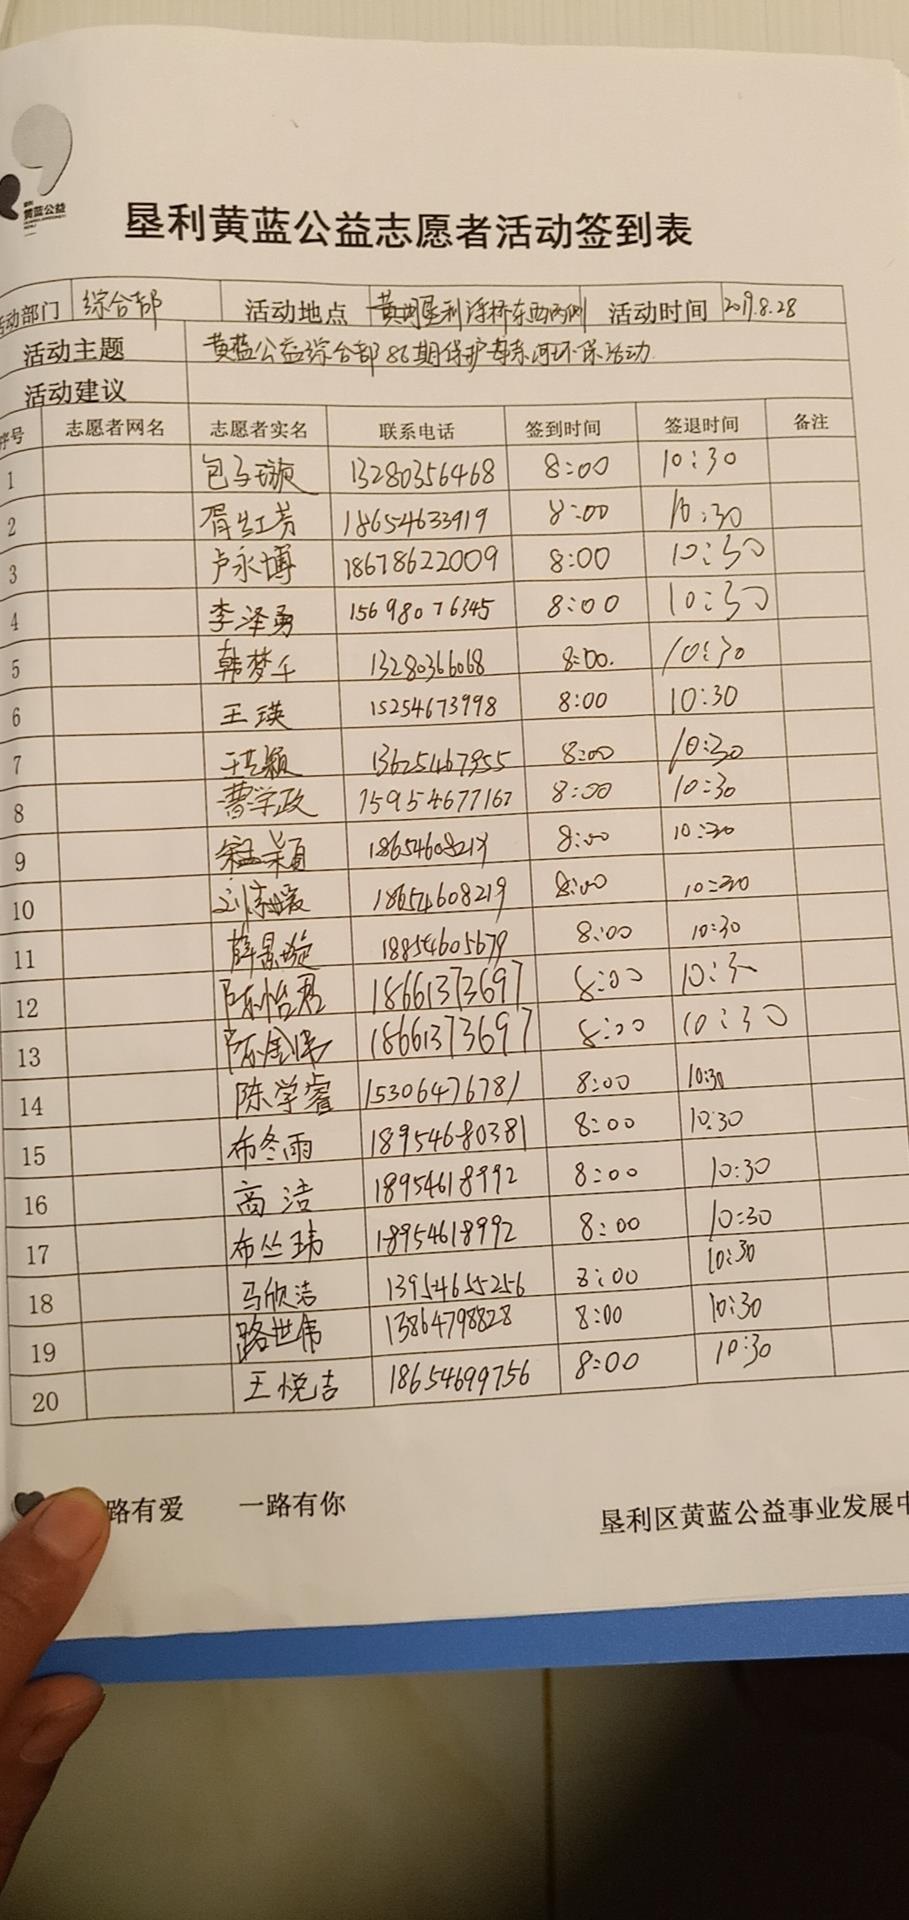 黄蓝公益
垦利黄蓝公益志愿者活动签到表
活动部门 综合部 活动地点 黄河垦利浮桥东西两侧 活动时间 2019.8.28
活动主题 黄蓝公益综合部86期保护母亲河环保活动
活动建议
序号 志愿者网名 志愿者实名 联系电话 签到时间 签退时间 备注
1 包子璇 13280356468 8:00 10:30
2 胥红芳 18654633919 8:00 10:30
3 卢永博 18678622009 8:00 10:30
4 李泽勇 15698076345 8:00 10:30
5 韩梦千 13280366068 8:00. 10:30
6 王瑛 15254673998 8:00 10:30
7 13625467955 8:00 10:30
8 曹学政 15954677167 8:00 10:30
9 8:00 10:30
10 18654608219 8:00 10:30
11 薛景璇 18854605679 8:00 10:30
12 陈怡君 18661373697 8:00 10:30
13 陈金伟 18661373697 8:00 10:30
14 陈学睿 15306476781 8:00 10:30
15 布冬雨 18954680381 8:00 10:30
16 高洁 18954618992 8:00 10:30
17 布丛玮 18954618992 8:00 10:30
18 马欣洁 13954655256 8:00 10:30
19 路世伟 13864798828 8:00 10:30
20 王悦吉 18654699756 8:00 10:30
路有爱 一路有你
垦利区黄蓝公益事业发展中